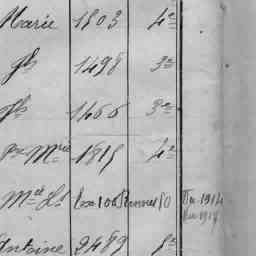 Marie 1803 4e
Jh 1498 3e
Jh 1466 3e
Px Mie 1815 4e
Mel Ls Rennes 10 Du 1914
1917
Antoine 2489